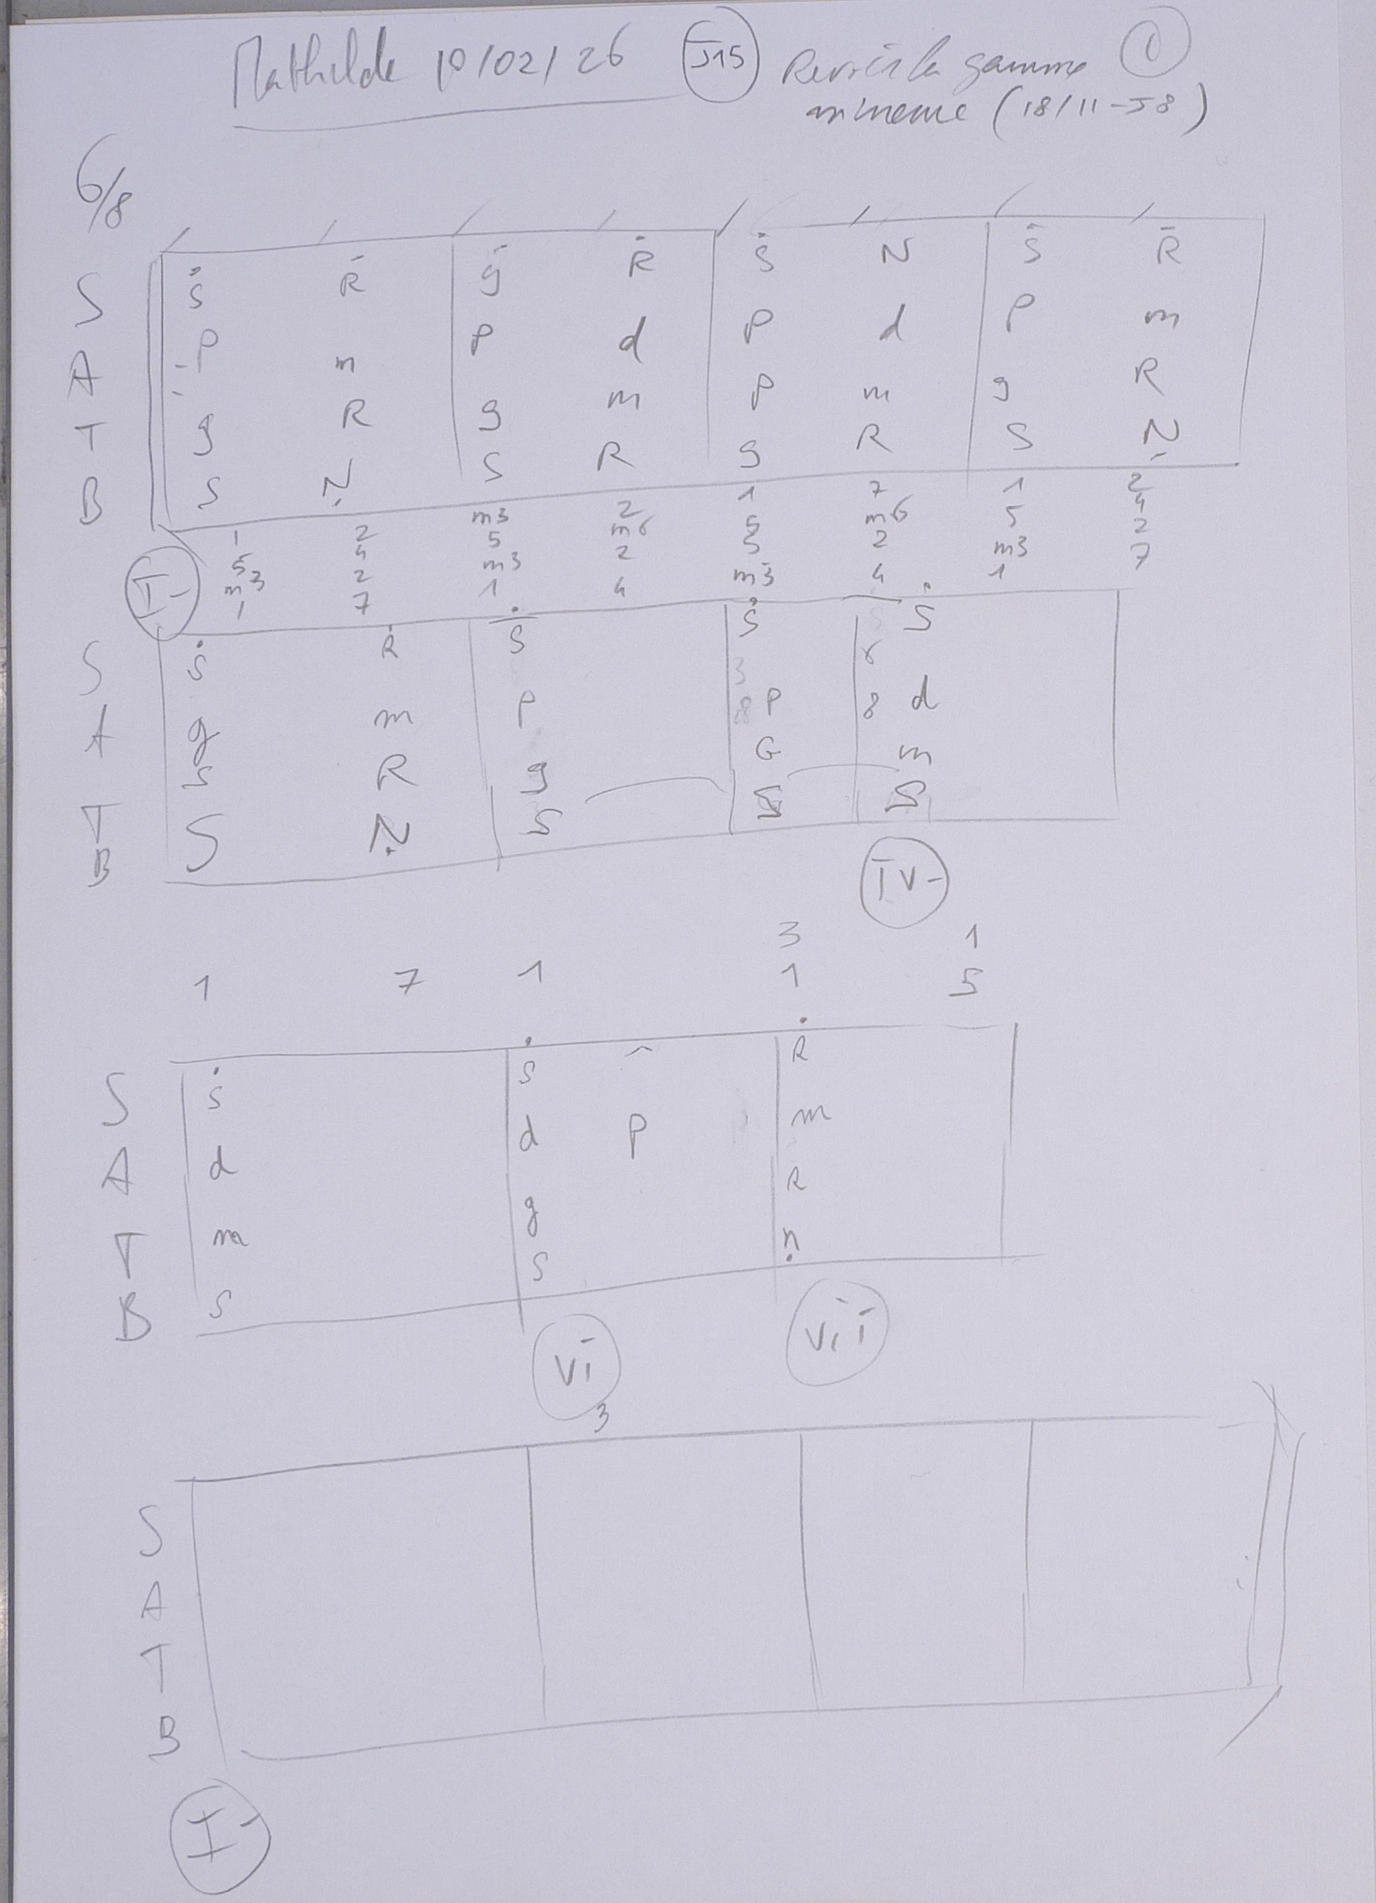 Mathilde 10/02/26 J15 Revoir la gamme 1
mineure (18/11-J8)
6/8
S ṡ Ṙ ġ Ṙ ṡ N ṡ Ṙ
A P m P d P d P m
T g R g m P m g R
B S Ṇ S R g R S Ṇ
1 2 m3 2 1 7 1 2
5 4 5 m6 5 m6 5 4
m3 2 m3 2 5 2 m3 2
1 7 1 4 m3 4 1 7
I-
S ṡ Ṙ ṡ ṡ ṡ
A g m P 3/8 P 6/8 d
T s R g G m
B S Ṇ S S S
IV-
3 1
1 7 1 1 5
S ṡ ṡ Ṙ
A d d P m
T m g R
B S S ṇ
VI VII
3
S
A
T
B
I-